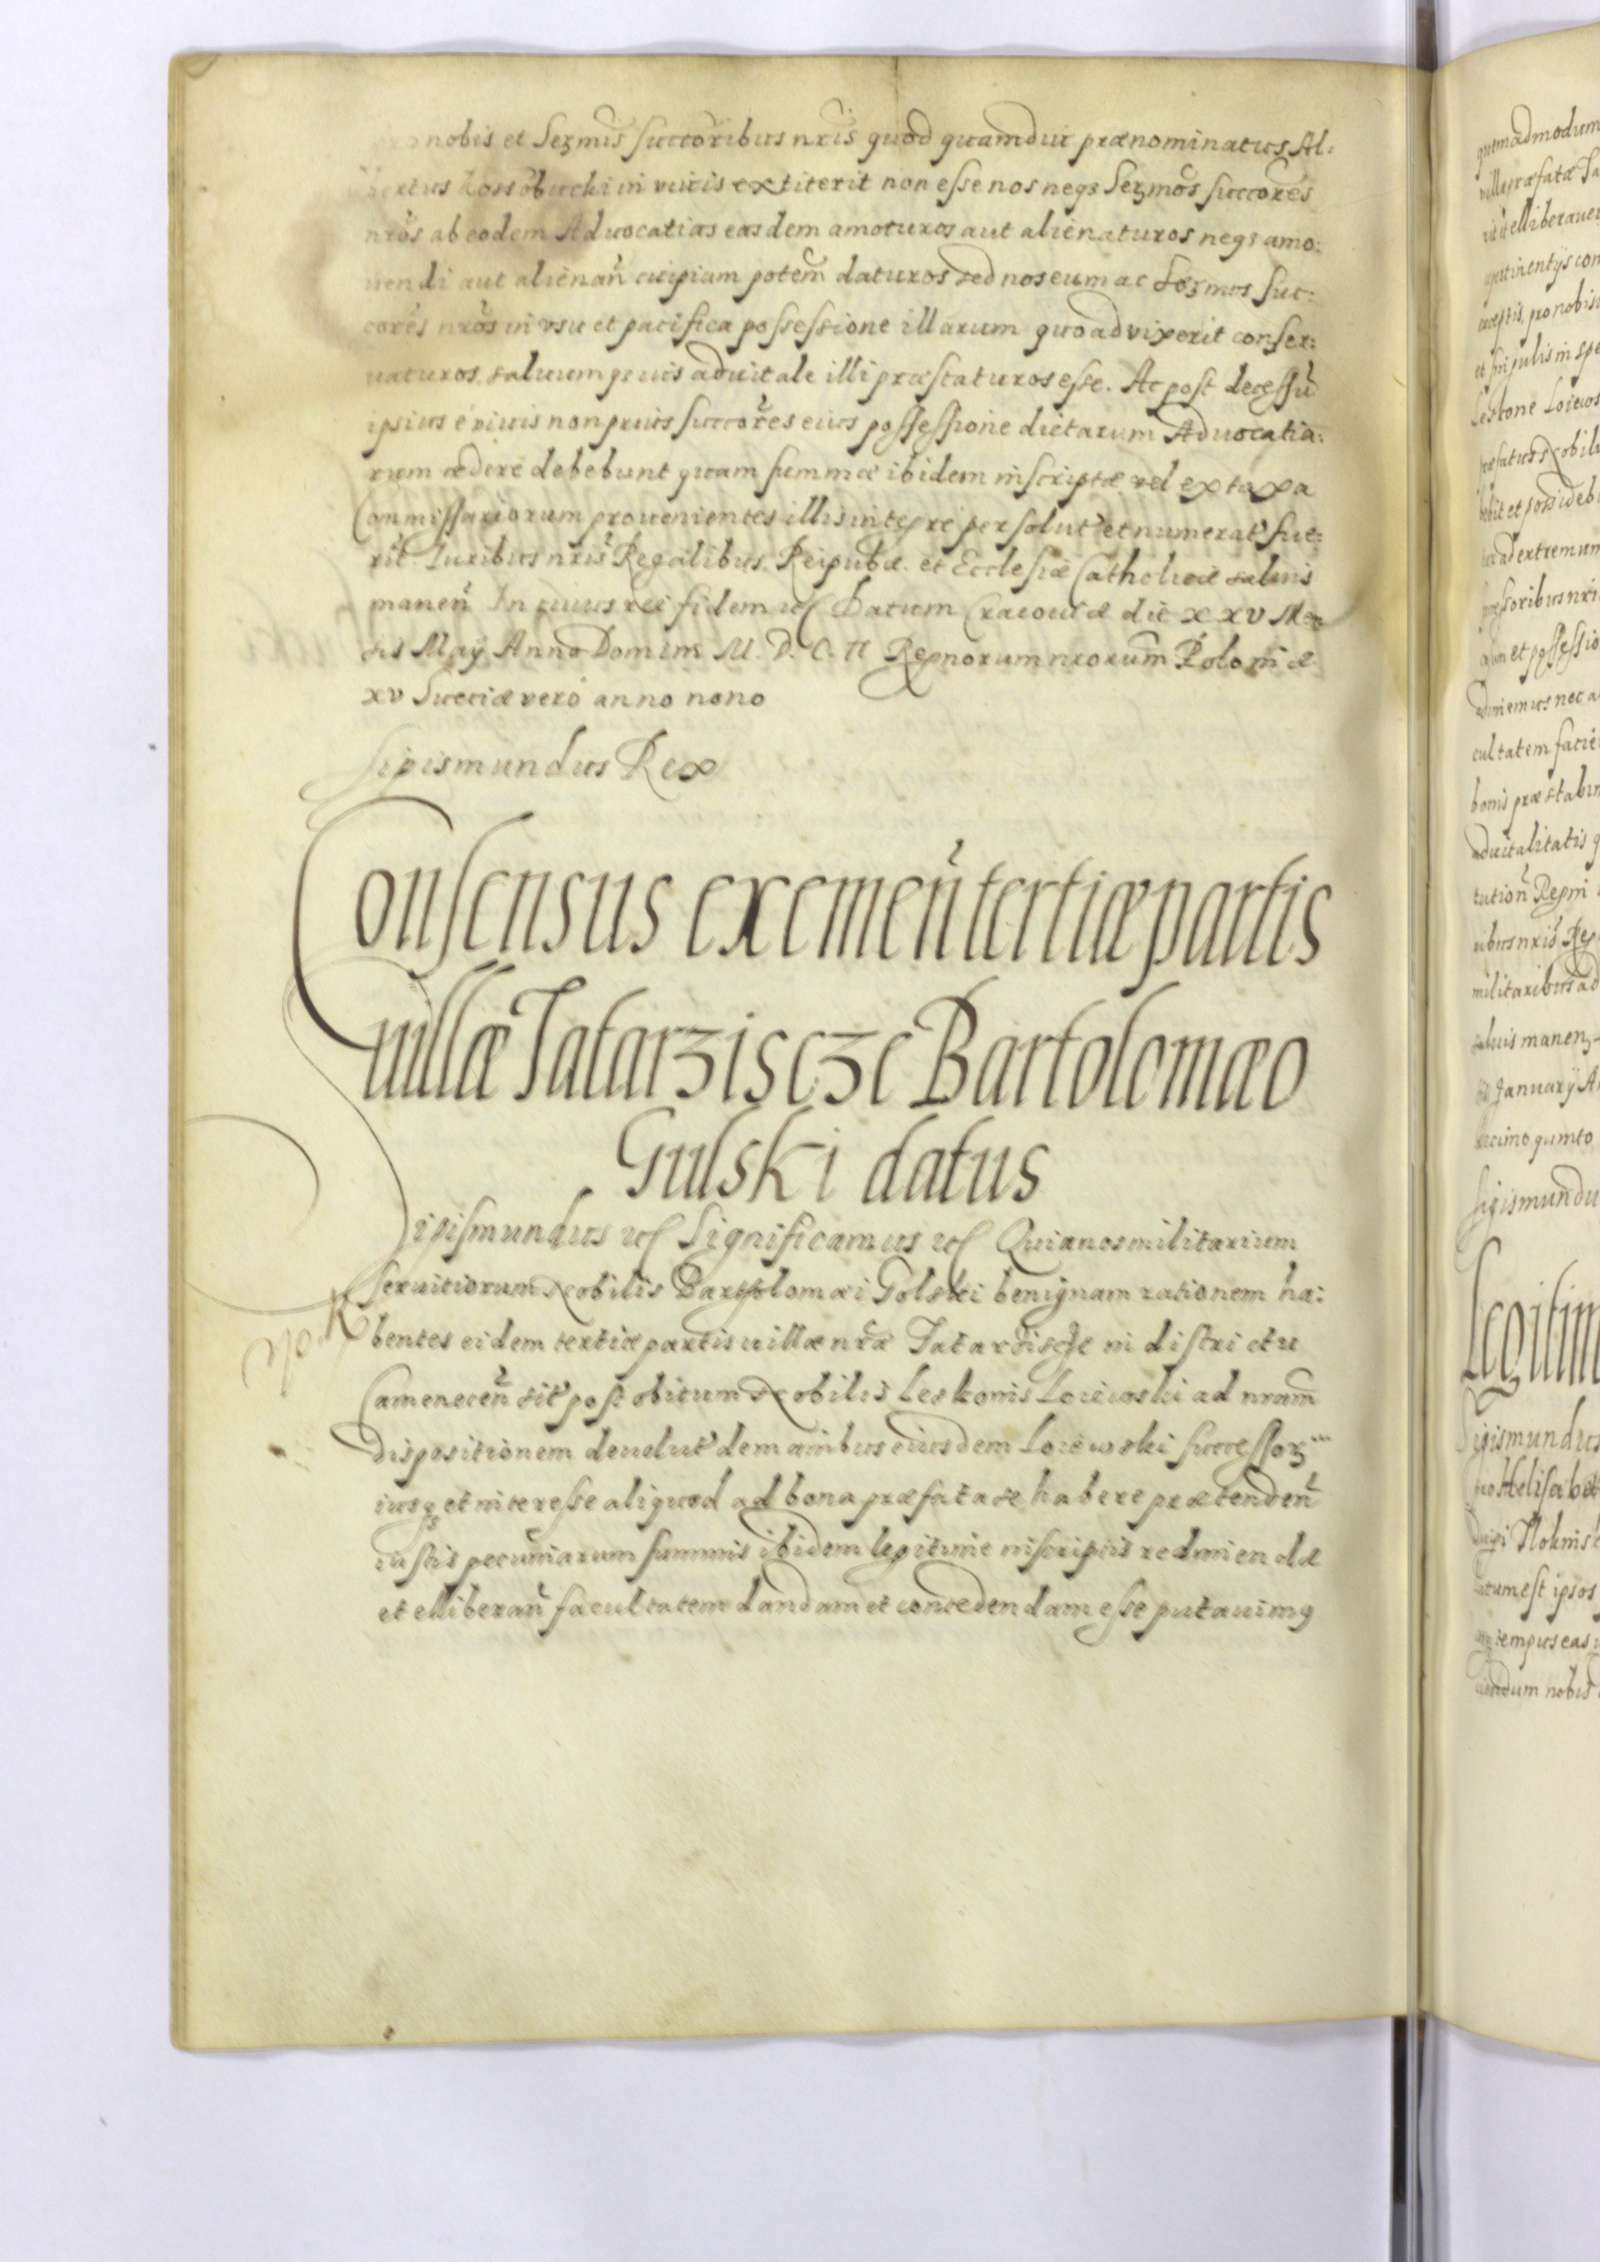 nobis et Serm̃is succoribus nr̃is quod quamdiu prænominatus Al:
bertus Kossobucki in viuis extiterit non esse nos neqꝫ Serm̃os succores
nr̃os ab eodem Aduocatias easdem amoturos aut alienaturos neqꝫ amo:
uendi aut alienañ cuipiam potem̃ daturos sed nos eum ac Serm̃os suc:
cores nr̃os in vsu et pacifica possessione illarum quoad vixerit conser:
uaturos, saluumqꝫ ius aduitale illi præstaturos esse. Ac post decessũ
ipsius e viuis non prius succores eius possessione dictarum Aduocatia:
rum cedere debebunt quam summæ ibidem inscriptæ vel ex taxa
Commissariorum prouenientes illis integre persolut' et numerat' fue:
rit. Iuribus nr̃is Regalibus, Reipubæ et Ecclesiæ Catholicæ saluis
maneñ In cuius rei fidem etc Datum Cracouiæ die XXV Men
sis Maÿ Anno Domini M. D. C. II Regnorum nrorum̃ Poloniæ
XV Sueciæ vero anno nono
Sigismundus Rex
Consensus exemeñ tertiæ partis
uillæ Tatarzisczc Bartolomæo
Gulski datus
Sigismundus etc Significamus etc Quia nos militarium
seruitiorum Nobilis Bartolomæi Golski benignam rationem ha:
bentes eidem tertiæ partis uillæ nr̃æ Tatarziscze in districtu
Cameneceñ sit' post obitum Nobilis Leskonis Loiewski ad nram̃
dispositionem deuolut' de manibus eiusdem Loiewski successorꝫ
iusqꝫ et interesse aliquod ad bona præfata se habere prætendeñ
iustis pecuniarum summis ibidem legitime inscriptis redimendæ
et elliberañ facultatem dandam et concedendam esse putauimꝯ
quemadmodum
villæ præfatæ Ta
et elliberauer
pertinentÿs con
exceptis, pro nobis
et singulis in spe
Leskone Loiewos
præfatus Nobili
habit et possideb
ad extremum
cessoribus nri
et possessio
adimemus nec a
cultatem facie
bonis præstabim
aduitalitatis q
tutioñ Regni
ribus nr̃is Re
militaribus ad
saluis maneñ
Januarÿ A
decimo quinto
Sigismundu
Legitim
Sigismundus
Helisabet
est ipsos
tempus eas
dum nobis